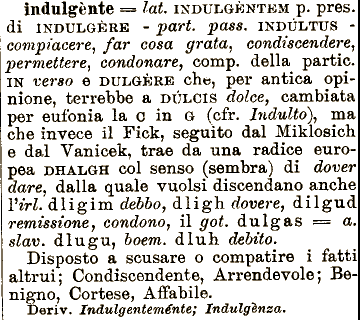 indulgènte = lat. INDULGÈNTEM p. pres.
di INDULGÈRE - part. pass. INDÚLTUS -
compiacere, far cosa grata, condiscendere,
permettere, condonare, comp. della partic.
IN verso e DULGÈRE che, per antica opi-
nione, terrebbe a DÚLCIS dolce, cambiata
per eufonia la C in G (cfr. Indulto), ma
che invece il Fick, seguito dal Miklosich
e dal Vanicek, trae da una radice euro-
pea DHALGH col senso (sembra) di dover
dare, dalla quale vuolsi discendano anche
l'irl. dligim debbo, dligh dovere, dilgud
remissione, condono, il got. dulgas = a.
slav. dlugu, boem. dluh debito.
Disposto a scusare o compatire i fatti
altrui; Condiscendente, Arrendevole; Be-
nigno, Cortese, Affabile.
Deriv. Indulgenteménte; Indulgènza.